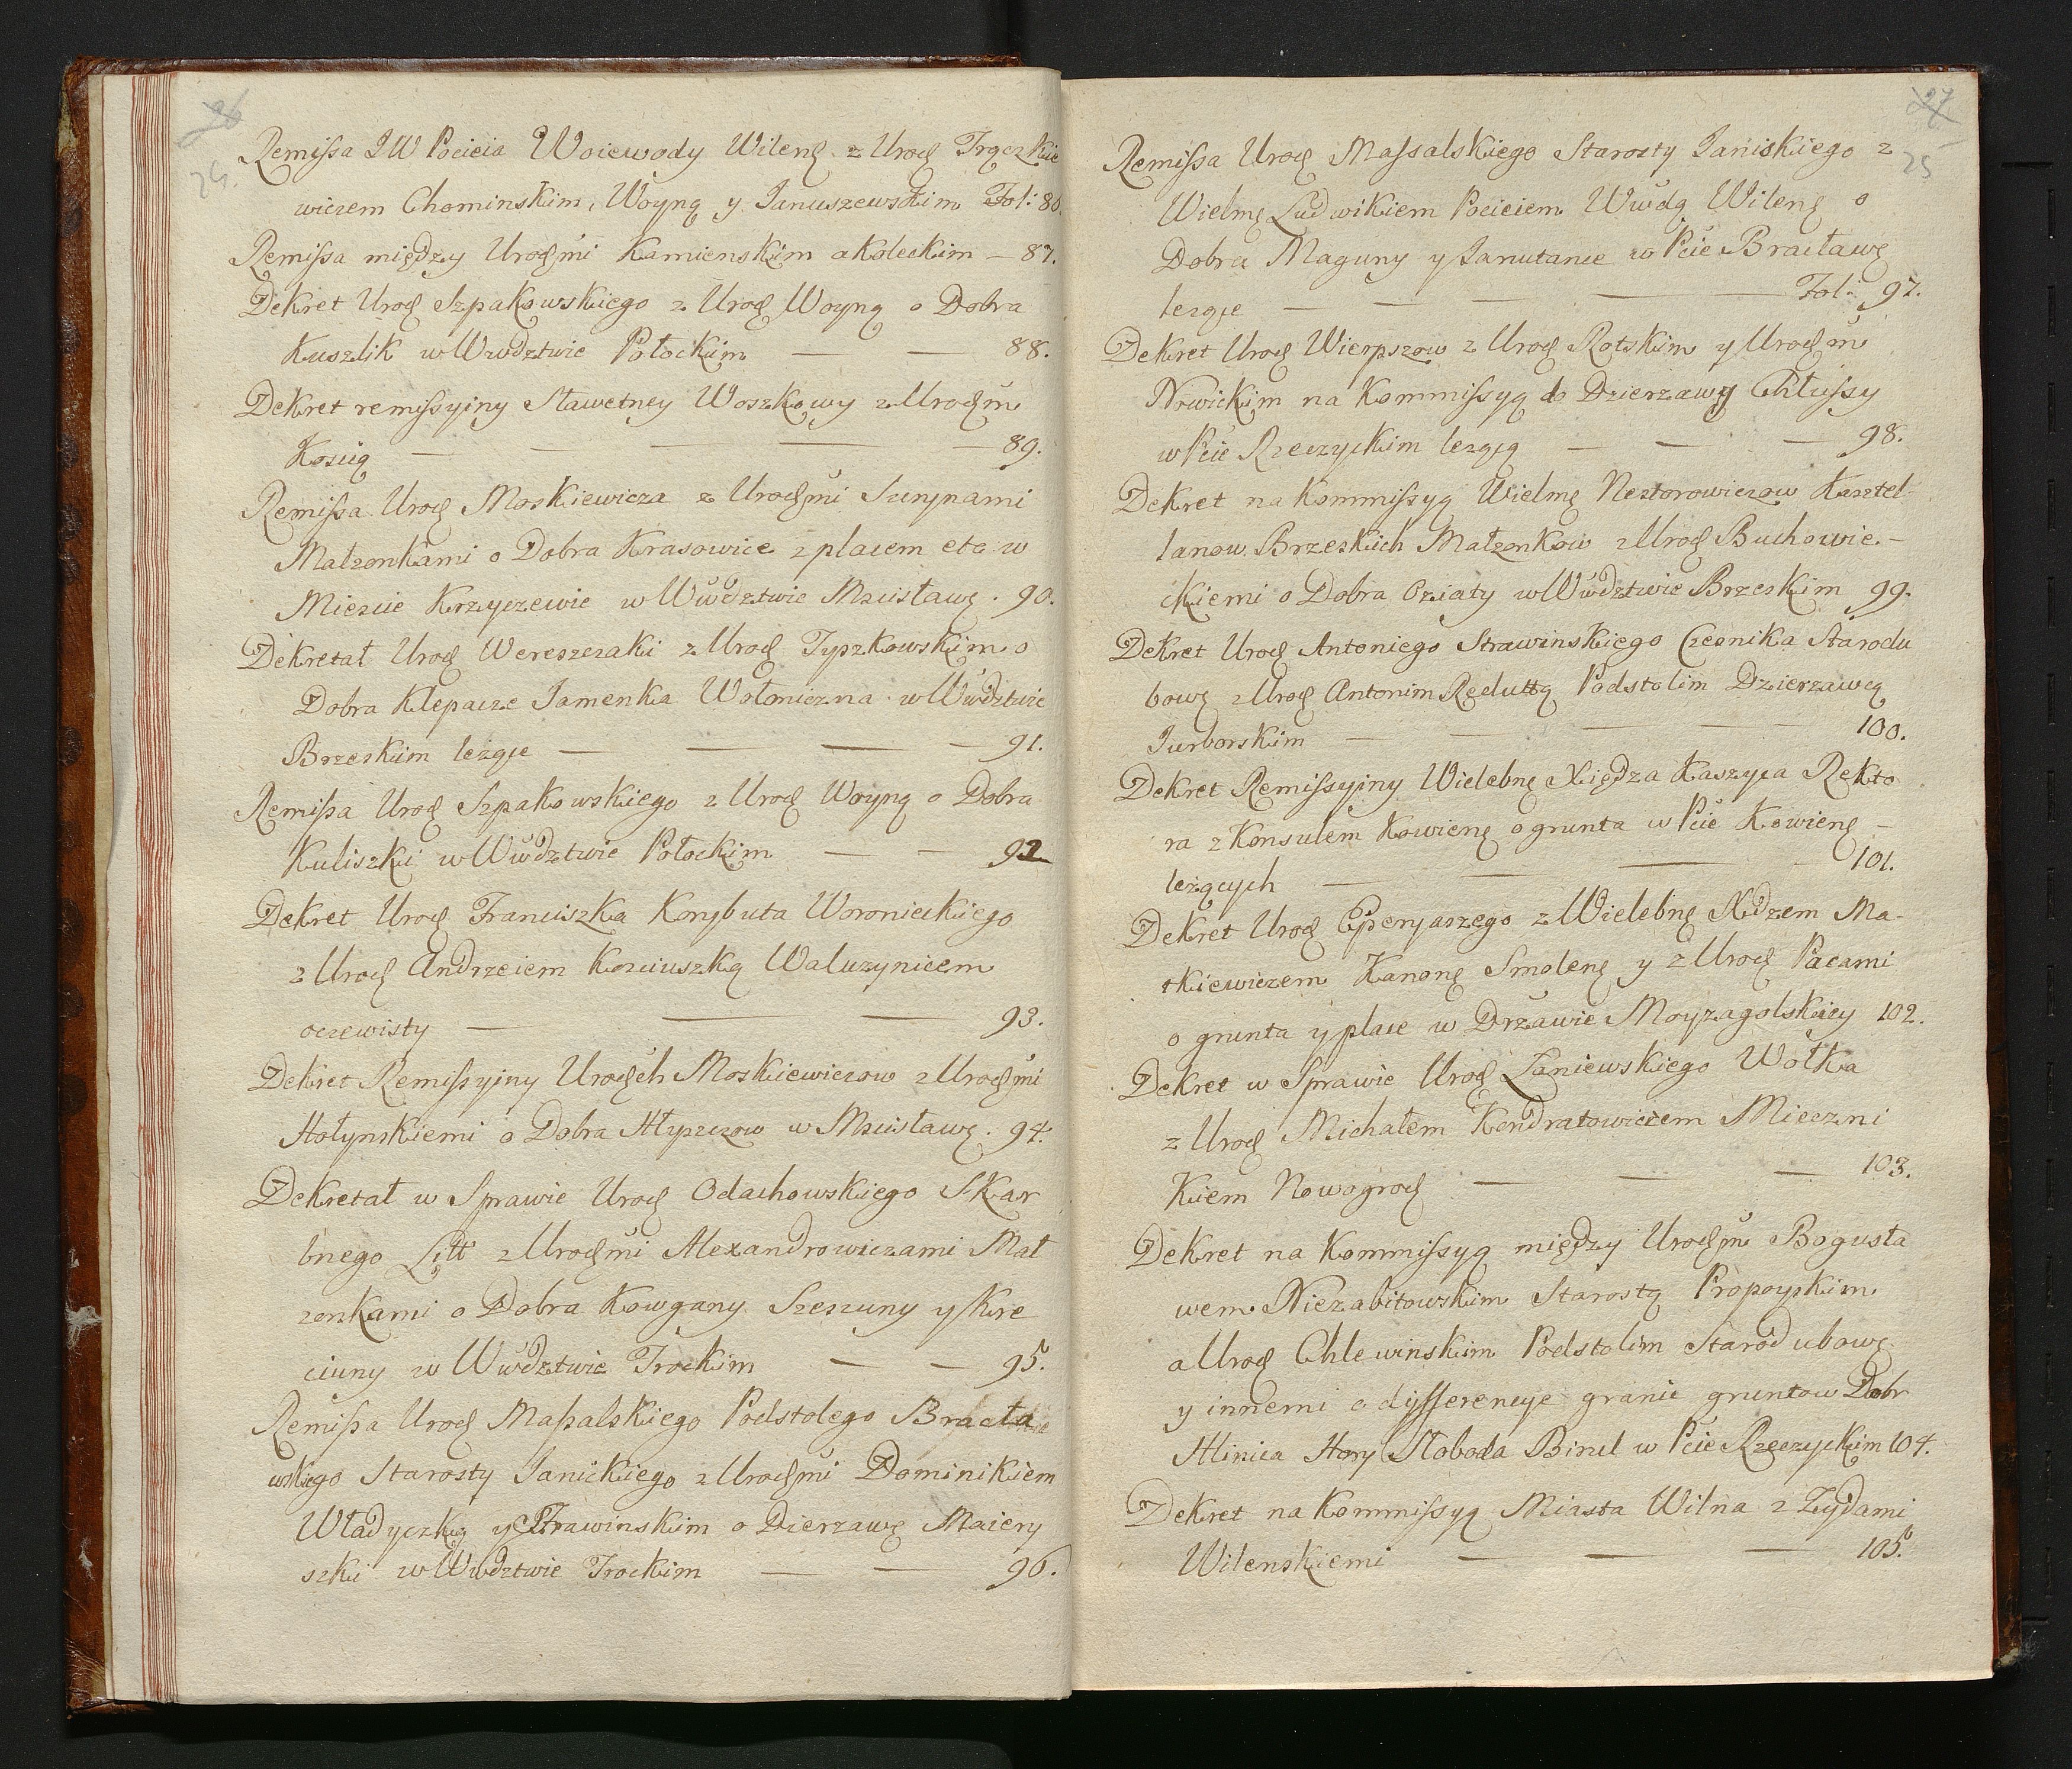 26
24.
Remissa JW Pocieia Woiewody Wileng z Urodz Trączkie
wiczem Chominskim, Woyną y Januszewskim Fol: 86.
Remissa między Urodzmi Kamienskim a Koleckim — 87.
Dekret Urodz Szpakowskiego z Urodz Woyną o Dobra
Kuszlik w Wwdztwie Połockim — — 88.
Dekret remissyiny Sławetney Woszkowy z Urodzm
Kosiią — — — — — 89.
Remissa Urodz Moskiewicza z Urodzmi Surynami
Małzonkami o Dobra Krasowice z placem etc w
Miescie Krzyczewie w Wwdztwie Mscisławg. 90.
Dekretał Urodz Wereszczaki z Urodz Tyszkowskim o
Dobra Klepacze Jamenka Wołoniczna w Wwdztwie
Brzeskim leżące — — — — 91.
Remissa Urodz Szpakowskiego z Urodz Woyną o Dobra
Kuliszki w Wwdztwie Połockim — — 92
Dekret Urodz Franciszka Korybuta Woronieckiego
z Urodz Andrzeiem Kosciuszką Waluzynicem
oczewisty — — — 93.
Dekret Remissyiny Urodzch Moskiewiczow z Urodzmi
Hołynskiemi o Dobra Hłyszczow w Mscisławg. 94.
Dekretał w Sprawie Urodz Odachowskiego Skar
bnego Litt z Urodzmi Alexandrowiczami Mał
zonkami o Dobra Kowgany Szeszuny y Kre
ciuny w Wwdztwie Trockim — — 95.
Remissa Urodz Massalskiego Podstolego Bracła
wskiego Starosty Janickiego z Urodzmi Dominikiem
Władyczką y Strawinskim o Dierzawę Maiery
szki w Wwdztwie Trockim — — 96.
27
25
Remissa Urodz Massalskiego Starosty Janiskiego z
Wielmg Ludwikiem Pocieiem Wwdą Wileng o
Dobra Maguny y Janutanie w Pcie Bracławg
lezące — — — — Fol: 97.
Dekret Urodz Wierpszow z Urodz Rotskim y Urodzm
Nowickim na Kommissyą do Dzierzawy Chłussy
w Pcie Rzeczyckim lezącą — — — 98.
Dekret na Kommissyą Wielmg Nestorowiczow Kasztel-
lanow Brzeskich Małzonkow z Urodz Buchowie-
ckiemi o Dobra Oziaty w Wwdztwie Brzeskim 99.
Dekret Urodz Antoniego Strawinskiego Czesnika Starodu
bowg z Urodz Antonim Reduttą Podstolim Dzierzawcą
Jurborskim — — — — — 100.
Dekret Remissyiny Wielebng Xiędza Kaszyca Rekto
ra z Konsulem Kowieng o grunta w Pcie Kowieng —
leżących — — — — 101.
Dekret Urodz Eperyaszego z Wielebng Xdzem Ma-
tkiewiczem Kanong Smoleng y z Urodz Pacami
o grunta y place w Drzawie Moyzagolskiey 102.
Dekret w Sprawie Urodz Zaniewskiego Wołka
z Urodz Michałem Kondratowiczem Mieczni
kiem Nowogrodz — — — 103.
Dekret na Kommissyą między Urodzm Bogusła
wem Niezabitowskim Starostą Propoyskim
a Urodz Chlewinskim Podstolim Starodubowg
y innemi o dyfferencye granic gruntow Dobr
Hlinica Hory Słoboda Birul w Pcie Rzeczyckim 104.
Dekret na Kommissyą Miasta Wilna z Zydami
Wilenskiemi — — — 105.